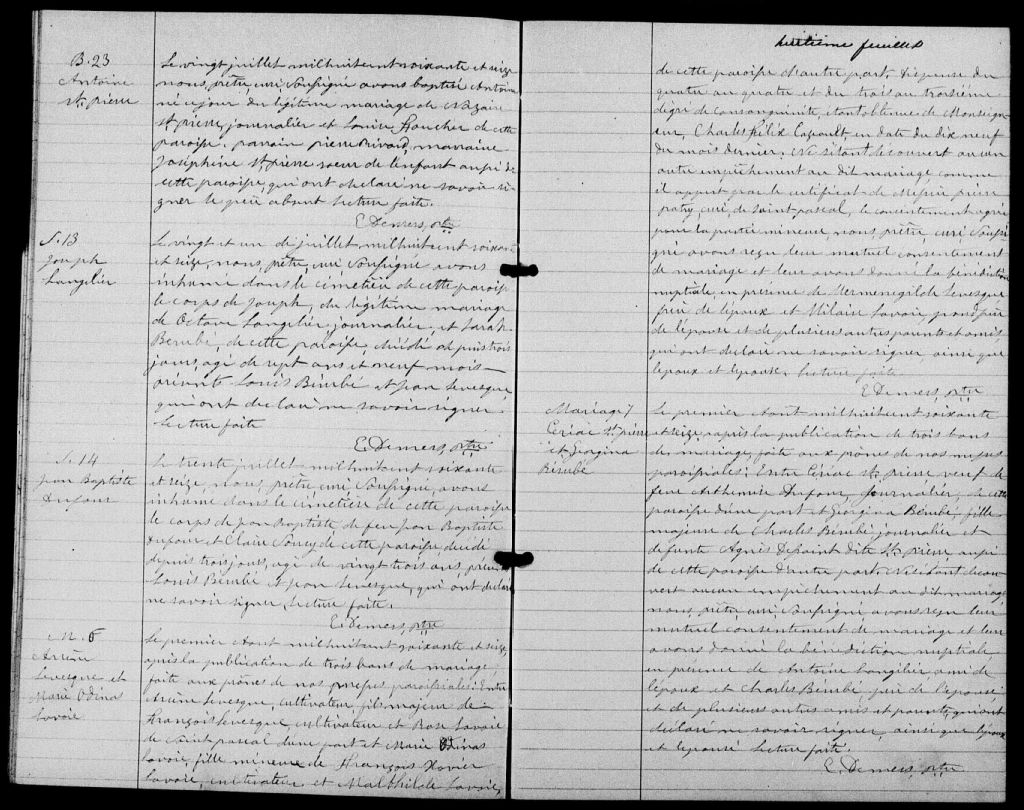 B. 23
Antoine
St. pierre
Le vingt juillet milhuitcent soixante et seize
nous, prêtre, curé Soussigné avons baptisé Antoine
né ce jour du légitime mariage de Nazair
St pierre, journalier et Louise Boucher de cette
paroisse, parrain pierre Rivard, marraine
Joséphine St pierre soeur de l'enfant aussi de
cette paroisse, qui ont déclaré ne savoir si-
gner le père absent lecture faite.
E. Demers, ptre
S. 13
Joseph
Langelier
Le vingt et un de juillet milhuitcent soixan
et seize, nous, prêtre, curé Soussigné avons
inhumé dans le cimetière de cette paroisse
le corps de Joseph, du légitime mariage
de Octave Langelier journalier, et Sarah
Bérubé, de cette paroisse, décédé depuis trois
jours, agé de sept ans et neuf mois
présents Louis Bérubé et jean Levesque,
qui ont déclaré ne savoir signer.
Lecture faite
E. Demers, ptre
S. 14
jean Baptiste
Dufour
Le trente juillet milhuitcent soixante
et seize, Nous, prêtre curé Soussigné, avons
inhumé dans le cimetière de cette paroisse
le corps de jean Baptiste de feu jean Baptiste
Dufour et Claire Soucy de cette paroisse, décédé
depuis trois jours, agé de vingt trois ans, présents
Louis Bérubé et jean Levesque, qui ont déclaré
ne savoir signer, lecture faite.
E. Demers, ptre
M. 6
Arsène
Levesque et
Marie Odina
Lavoie
Le premier Aout milhuitcent soixante et seize,
après la publication de trois bans de mariage
faite aux prônes de nos messes paroissiales: Entre
Arsène Levesque, cultivateur, fils majeur de
François Levesque cultivateur et Rose Lavoie
de Saint pascal d'une part et Marie Odina
Lavoie, fille mineure de François Xavier
Lavoie, cultivateur et Malthilde Lavoie,
huitième feuillet
de cette paroisse d'autre part. Dispense du
quatre au quatre et du trois au troisième
dégré de consanguinité, étant obtenue de Monseign-
eur, Charles Félix Cazeault, en date du dix neuf
du mois dernier, Ne s'étant découvert aucun
autre empêchement au dit mariage comme
il appert par le certificat de Messire pierre
patry, curé de Saint pascal, le consentement
pour la partie mineure nous, prêtre curé, Soussi-
gné avons reçu leur mutuel consentement
de mariage et leur avons donné la bénédiction
nuptiale, en présence de Hermenegilde Levesque
père de l'époux et Hilaire Lavoie, grand père
de l'épouse et de plusieurs autres parents et amis,
qui ont déclaré ne savoir signer ainsi que
l'époux et l'épouse. Lecture faite
E. Demers, ptre
Mariage 7
Cériac St. pierre
et Georgina
Bérubé
Le premier Aout milhuitcent soixante
et seize, après la publication de trois bans
de mariage, faite aux prônes de nos messes
paroissiales: Entre Cériac St. pierre veuf de
feue Arthémise Dufour, journalier, de cette
paroisse d'une part et Georgina Bérubé, fille
majeure de Charles Bérubé journalier et
défunte Agnès Desaint dite St. pierre aussi
de cette paroisse d'autre part. Ne s'étant décou-
vert aucun empêchement au dit mariage,
nous, prêtre, curé Soussigné, avons reçu leur
mutuel consentement de mariage et leur
avons donné la bénédiction nuptiale,
en présence de Antoine Langelier ami de
l'époux et Charles Bérubé père de l'épouse
et de plusieurs autres amis et parents, qui ont
déclaré ne savoir signer, ainsi que l'époux
et l'épouse. Lecture faite.
E. Demers, ptre